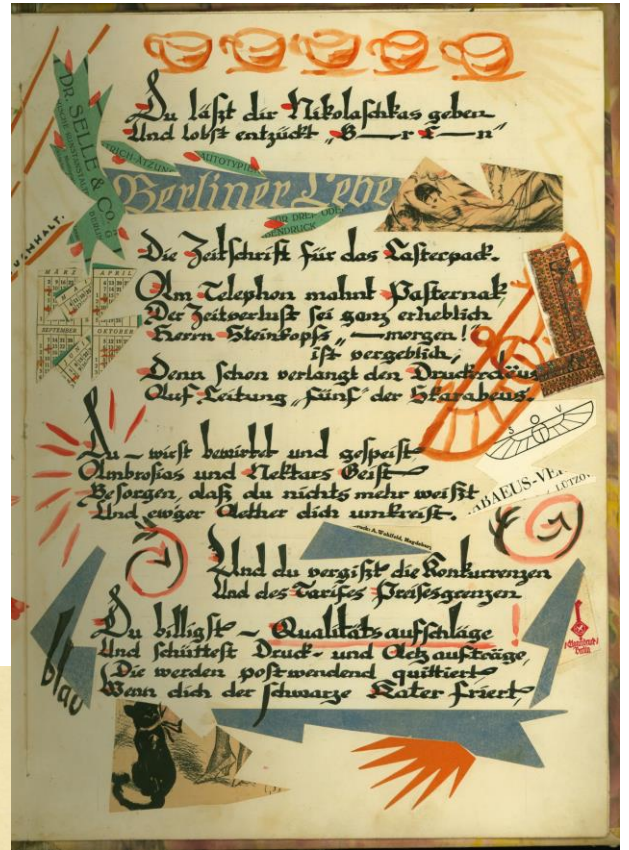 Du läßt dir Nikolaschkas geben
Und lobst entzückt „B — r L — n"
DR. SELLE & CO.
BERLIN
STRICH-ÄTZUNG
AUTOTYPIE
Berliner Lebe
ODER DREI- ODER
ENDRUCK
INHALT.
Die Zeitschrift für das Lasterpack.
MÄRZ
APRIL
SEPTEMBER
OKTOBER
Am Telephon mahnt Pasternak
Der Zeitverlust sei ganz erheblich
Herrn Steinkopfs „—morgen!"
ist vergeblich,
Denn schon verlangt den Druck
Auf Leitung „fünf" der Skarabeus.
S O V
Du – wirst bewirtet und gespeist
Ambrosias und Nektars Geist
Besorgen, daß du nichts mehr weißt
Und ewiger Aether dich umkreist.
ABAEUS-VE
LÜTZO
Druck: A. Wohlfeld, Magdeburg
Und du vergißt die Konkurrenzen
Und des Tarifes Preisesgrenzen
Du billigst – Qualitätsaufschläge!
Und schüttest Druck- und Aetzaufträge,
Die werden postwendend quittiert
Wenn dich der schwarze Kater friert
blau
Berlin